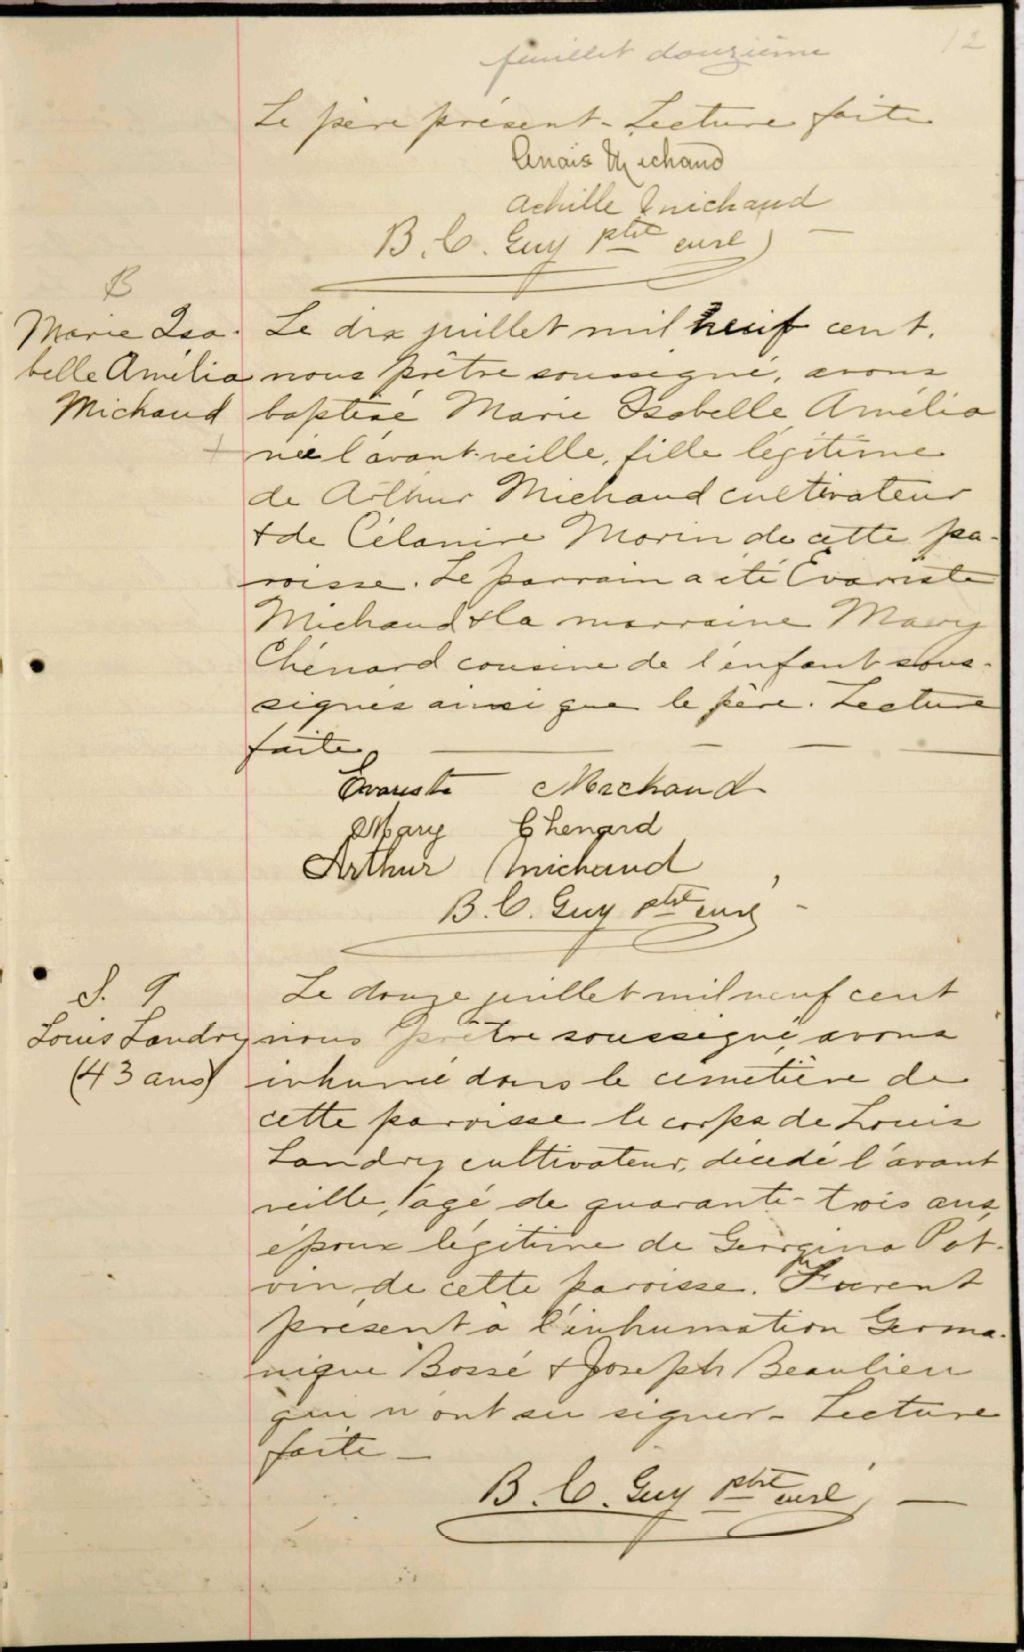 feuillet douzième
12
Le père présent - Lecture faite
Anais Michaud
Achille Michaud
B. C. Guy ptre curé
B
Marie Isa-
belle Amélia
Michaud
Le dix juillet mil neuf cent,
nous prêtre soussigné, avons
baptisé Marie Isabelle Amélia
née l'avant-veille, fille légitime
de Arthur Michaud cultivateur
+ de Célanire Morin de cette pa-
roisse. Le parrain a été Evariste
Michaud & la marraine Mary
Chénard cousine de l'enfant sous-
signés ainsi que le père. Lecture
faite
Evariste Michaud
Mary Chenard
Arthur Michaud
B. C. Guy ptre curé
S. 9
Louis Landry
(43 ans)
Le douze juillet mil neuf cent
nous prêtre soussigné, avons
inhumé dans le cimetière de
cette paroisse le corps de Louis
Landry cultivateur, décédé l'avant
veille, âgé de quarante-trois ans,
époux légitime de Georgina Pot-
vin, de cette paroisse. Furent
présent à l'inhumation Germa-
nique Bossé & Joseph Beaulieu
qui n'ont su signer - Lecture
faite -
B. C. Guy ptre curé